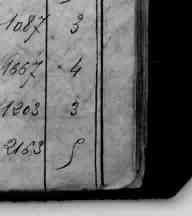 1087 3
1667 4
1203 3
2153 5